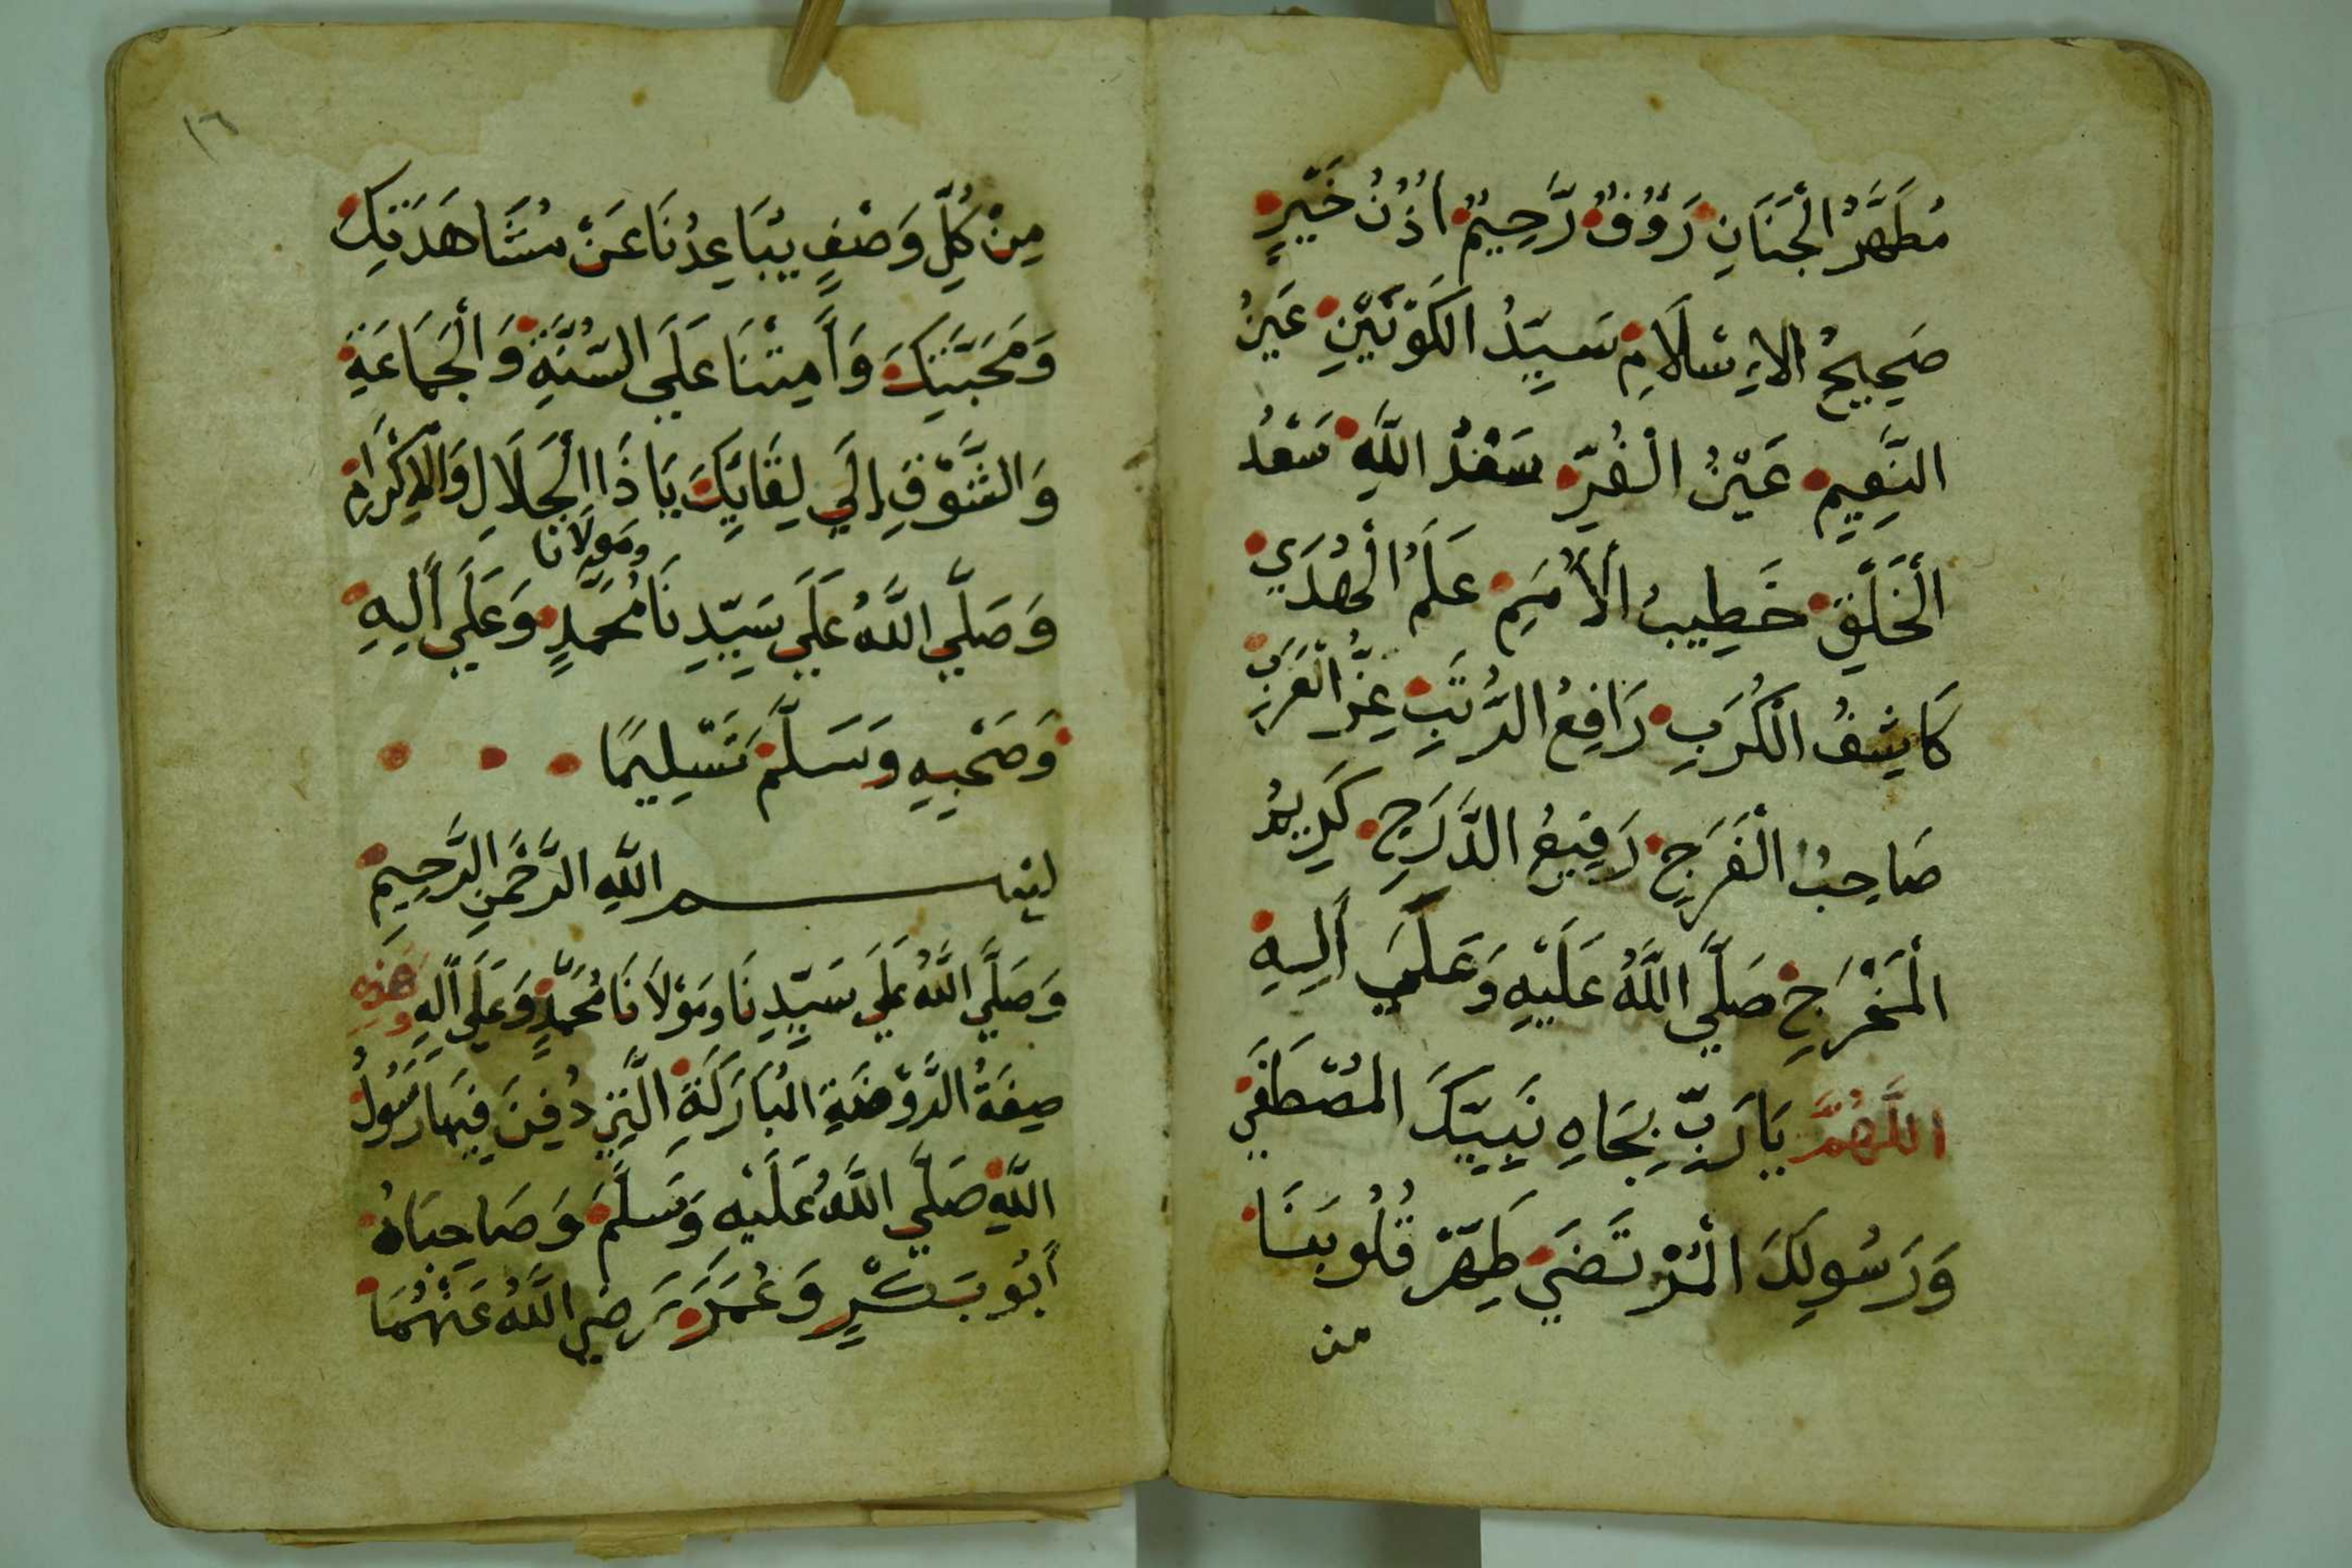 مُطَهَّرُ الْجَنَانِ رَؤُفٌ رَّحِيمٌ اُذُنُ خَيْرٍ
صَحِيحُ الاِسْلَامِ سَيِّدُ الكَوْنَيْنِ عَيْنُ
النَّعِيمِ عَيْنُ الْغُرِّ سَعْدُ اللَّهِ سَعْدُ
الْخَلْقِ خَطِيبُ الْأُمَمِ عَلَمُ الْهُدَي
كَاشِفُ الْكُرَبِ رَافِعُ الرُّتَبِ عِزُّ الْعَرَبِ
صَاحِبُ الْفَرَجِ رَفِيعُ الدَّرَجِ كَرِيمُ
الْمَخْرَجِ صَلَّي اللَّهُ عَلَيْهِ وَعَلَي أَلِهِ
اللَّهُمَّ يَا رَبِّ بِجَاهِ نَبِيِّكَ المُصْطَفَي
وَرَسُولِكَ الْمُرْتَضَي طَهِّرْ قُلُوبَنَا
من
١٦
مِنْ كُلِّ وَصْفٍ يُبَاعِدُنَا عَنْ مُشَاهَدَتِكَ
وَمَحَبَّتِكَ وَأَمِتْنَا عَلَي السُّنَّةِ وَالْجَمَاعَةِ
وَالشَّوْقِ إِلَي لِقَايِكَ يَا ذَا الْجَلَالِ وَالْاِكْرَام
وَصَلَّي اللَّهُ عَلَي سَيِّدِنَا ومَولَانا مُحَمَّدٍ وَعَلَي أَلِهِ
وَصَحْبِهِ وَسَلَّمَ تَسْلِيمًا
بسم اللَّهِ الرَّحْمَنِ الرَّحِيمِ
وَصَلَّي اللَّهُ عَلَي سَيِّدِنَا ومَوْلَانَا مُحَمَّدٍ وَعَلَي اَلِهِ وَهَذِهِ
صِفَةُ الرَّوْضَةِ المُبَارَكَةِ الَّتِي دُفِنَ فِيهَا رَسُولُ
اللَّهِ صَلَّي اللَّهُ عَلَيْهِ وَسَلَّمَ وَصَاحِبَاهُ
أَبُو بَكْرٍ وَعُمَرَ رَضِي اللَّهُ عَنْهُمَا